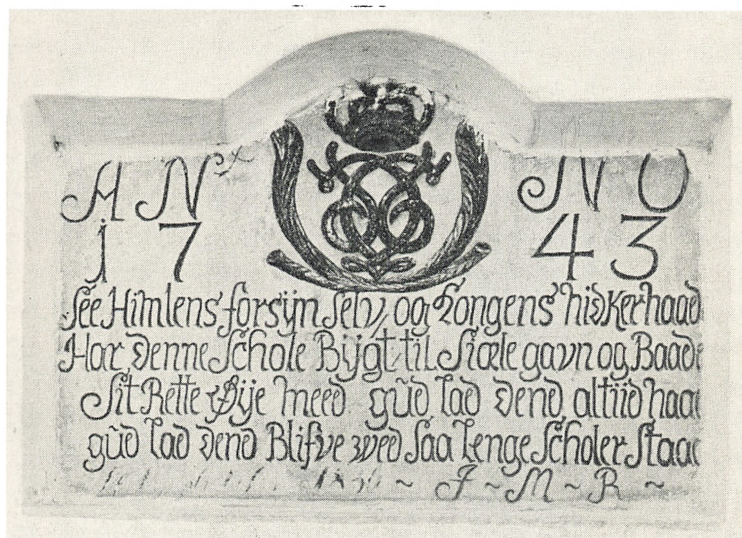 AN NO
17 43
See Himlens forsÿn Selv, og Kongens hidkerhaad
Har, denne Schole Bÿgt, til Siæle gavn og Baade
Sit Rette Øÿe meed gud lad dend altiid haa
gud lad dend Blifve wed Saa Lenge Scholer Staae
~ J ~ M ~ R ~